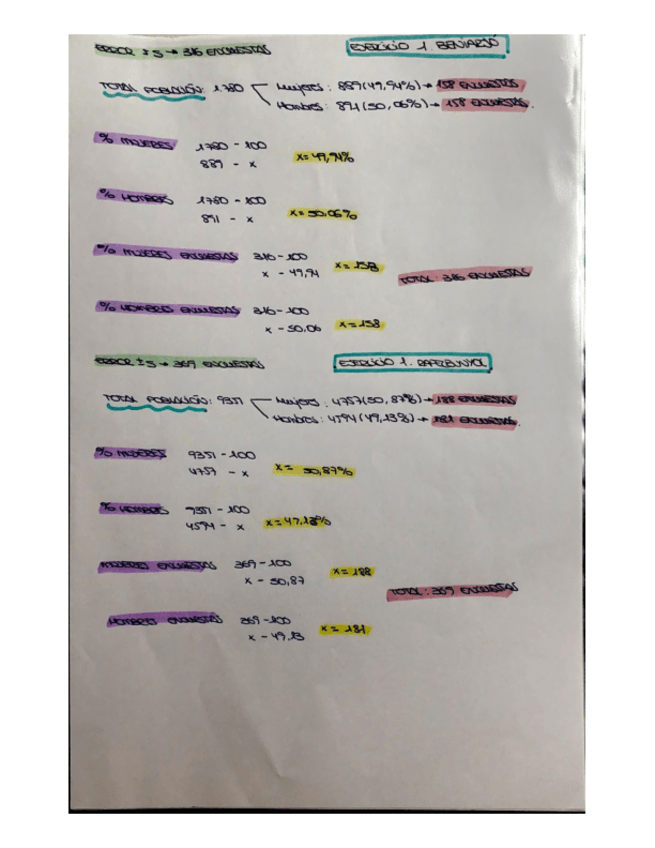 ERROR ± 5 → 316 ENCUESTAS
EJERCICIO 1 BENIARJÓ
TOTAL POBLACIÓN: 1780
Mujeres: 889 (49,94%) → 158 ENCUESTAS
Hombres: 891 (50,06%) → 158 ENCUESTAS.
% MUJERES 1780 - 100
889 - x x = 49,94%
% HOMBRES 1780 - 100
891 - x x = 50,06%
% MUJERES ENCUESTAS 316 - 100
x - 49,94 x = 158
TOTAL: 316 ENCUESTAS
% HOMBRES ENCUESTAS 316 - 100
x - 50,06 x = 158
ERROR ± 5 → 369 ENCUESTAS
EJERCICIO 1. RAFELBUNYOL
TOTAL POBLACIÓN: 9351
Mujeres: 4757 (50,87%) → 188 ENCUESTAS
Hombres: 4594 (49,13%) → 181 ENCUESTAS.
% MUJERES 9351 - 100
4757 - x x = 50,87%
% HOMBRES 9351 - 100
4594 - x x = 49,13%
MUJERES ENCUESTAS 369 - 100
x - 50,87 x = 188
TOTAL: 369 ENCUESTAS
HOMBRES ENCUESTAS 369 - 100
x - 49,13 x = 181